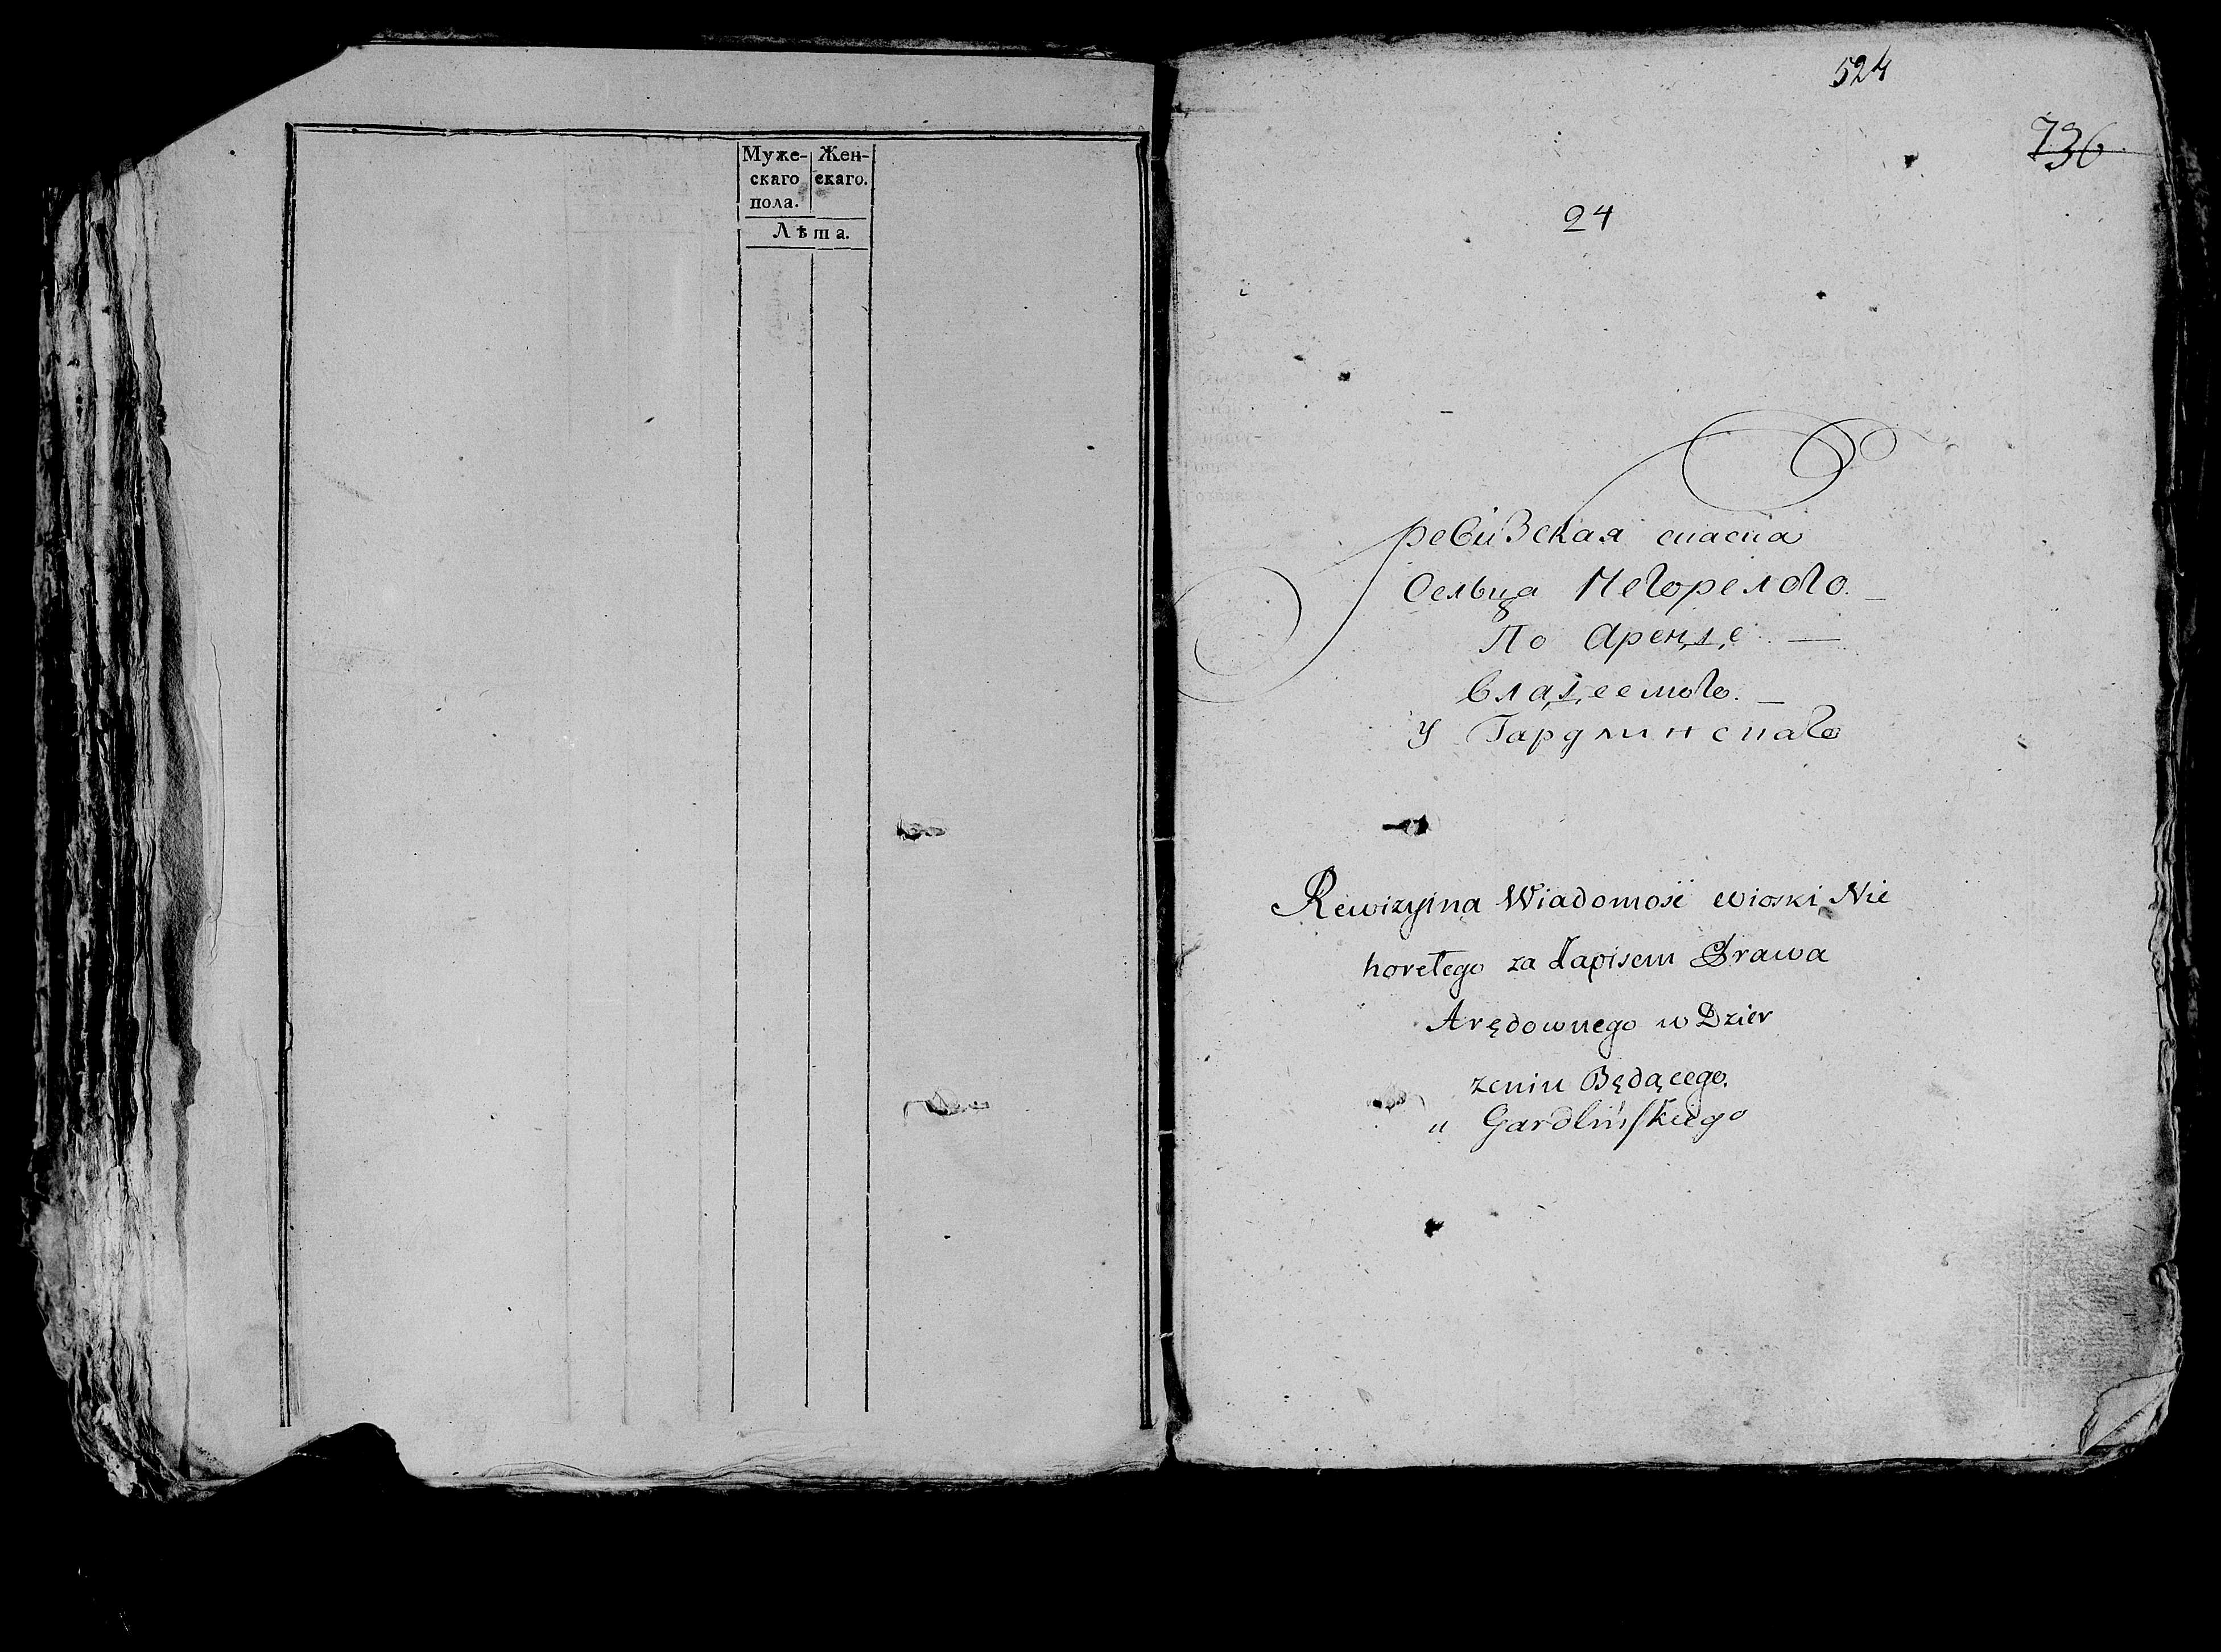 Муже- Жен-
скаго скаго.
пола.
Лѣта.
524
736
24
ревизская спаспа
Сельца Негорелого.
По Аренде
Владеемого.
У Гардлинспаго
Rewizyina Wiadomość wioski Nie
horełego za Zapisem Prawa
Arędownego w Dzier
żeniu Będącego.
u Gardlińskiego